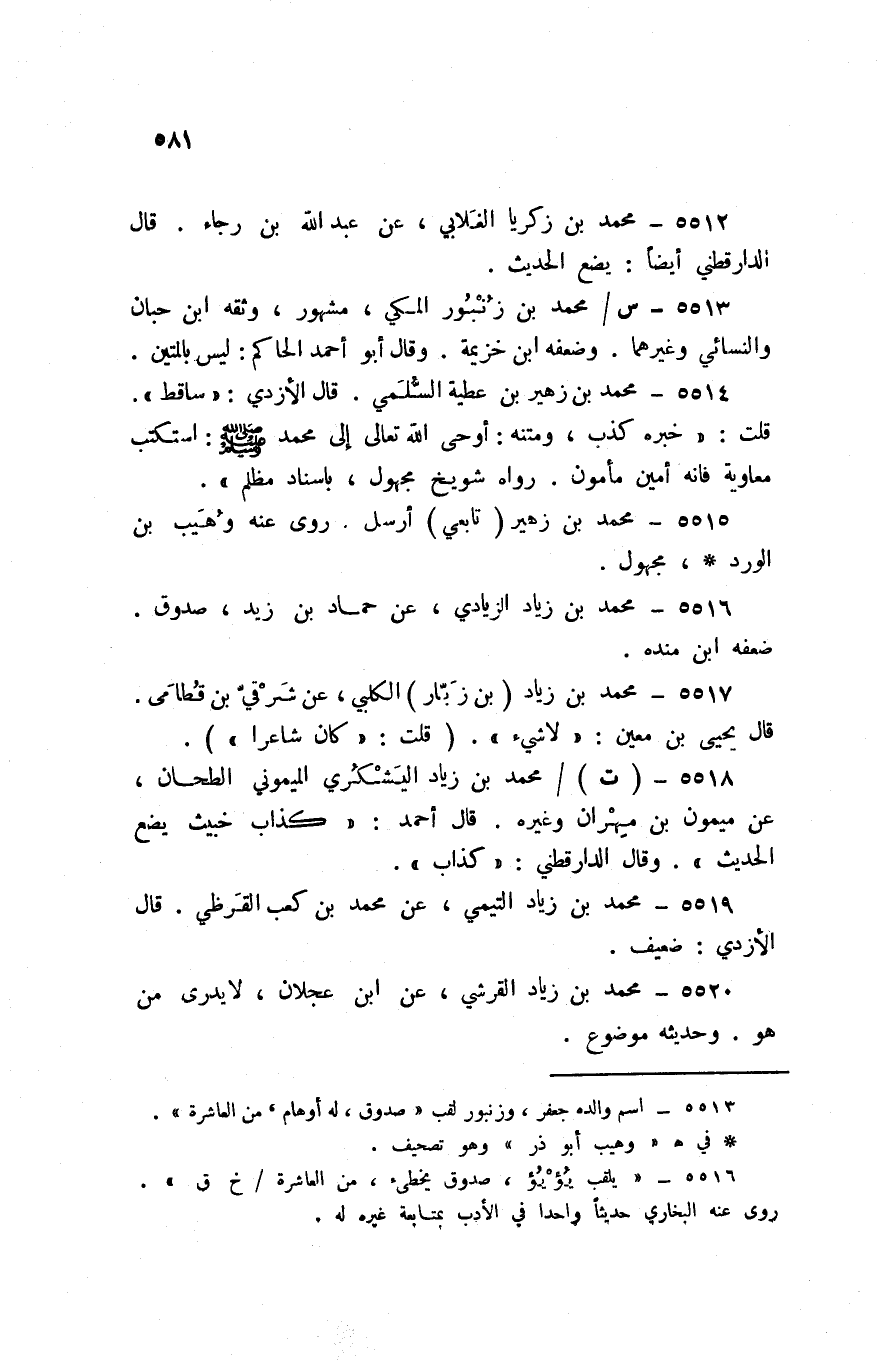 ٥٨١
٥٥١٢ – محمد بن زكريا الغَلابي ، عن عبد الله بن رجاء . قال
الدارقطني أيضاً : يضع الحديث .
٥٥١٣ – س / محمد بن زُنْبُور المكي ، مشهور ، وثقه ابن حبان
والنسائي وغيرهما . وضعفه ابن خزيمة . وقال أبو أحمد الحاكم : ليس بالمتين .
٥٥١٤ – محمد بن زهير بن عطية السُّلَمي . قال الأزدي : « ساقط » .
قلت : « خبره كذب ، ومتنه : أوحى الله تعالى إلى محمد ﷺ : استكتب
معاوية فانه أمين مأمون . رواه شويخ مجهول ، باسناد مظلم » .
٥٥١٥ – محمد بن زهير ( تابعي ) أرسل . روى عنه وُهَيب بن
الورد * ، مجهول .
٥٥١٦ – محمد بن زياد الزيادي ، عن حماد بن زيد ، صدوق .
ضعفه ابن منده .
٥٥١٧ – محمد بن زياد ( بن زَبّار ) الكلبي ، عن شَرْقيّ بن قُطامَى .
قال يحيى بن معين : « لاشيء » . ( قلت : « كان شاعرا » ) .
٥٥١٨ – ( ت ) / محمد بن زياد اليَشْكُري الميموني الطحان ،
عن ميمون بن مِهْران وغيره . قال أحمد : « كذاب خبيث يضع
الحديث » . وقال الدارقطني : « كذاب » .
٥٥١٩ – محمد بن زياد التيمي ، عن محمد بن كعب القَرظي . قال
الأزدي : ضعيف .
٥٥٢٠ – محمد بن زياد القرشي ، عن ابن عجلان ، لايدرى من
هو . وحديثه موضوع .
٥٥١٣ – اسم والده جعفر ، وزنبور لقب « صدوق ، له أوهام ، من العاشرة » .
* في ه « وهيب أبو ذر » وهو تصحيف .
٥٥١٦ – « يلقب يُؤْيُؤ ، صدوق يخطىء ، من العاشرة / خ ق » .
روى عنه البخاري حديثاً واحدا في الأدب بمتابعة غيره له .